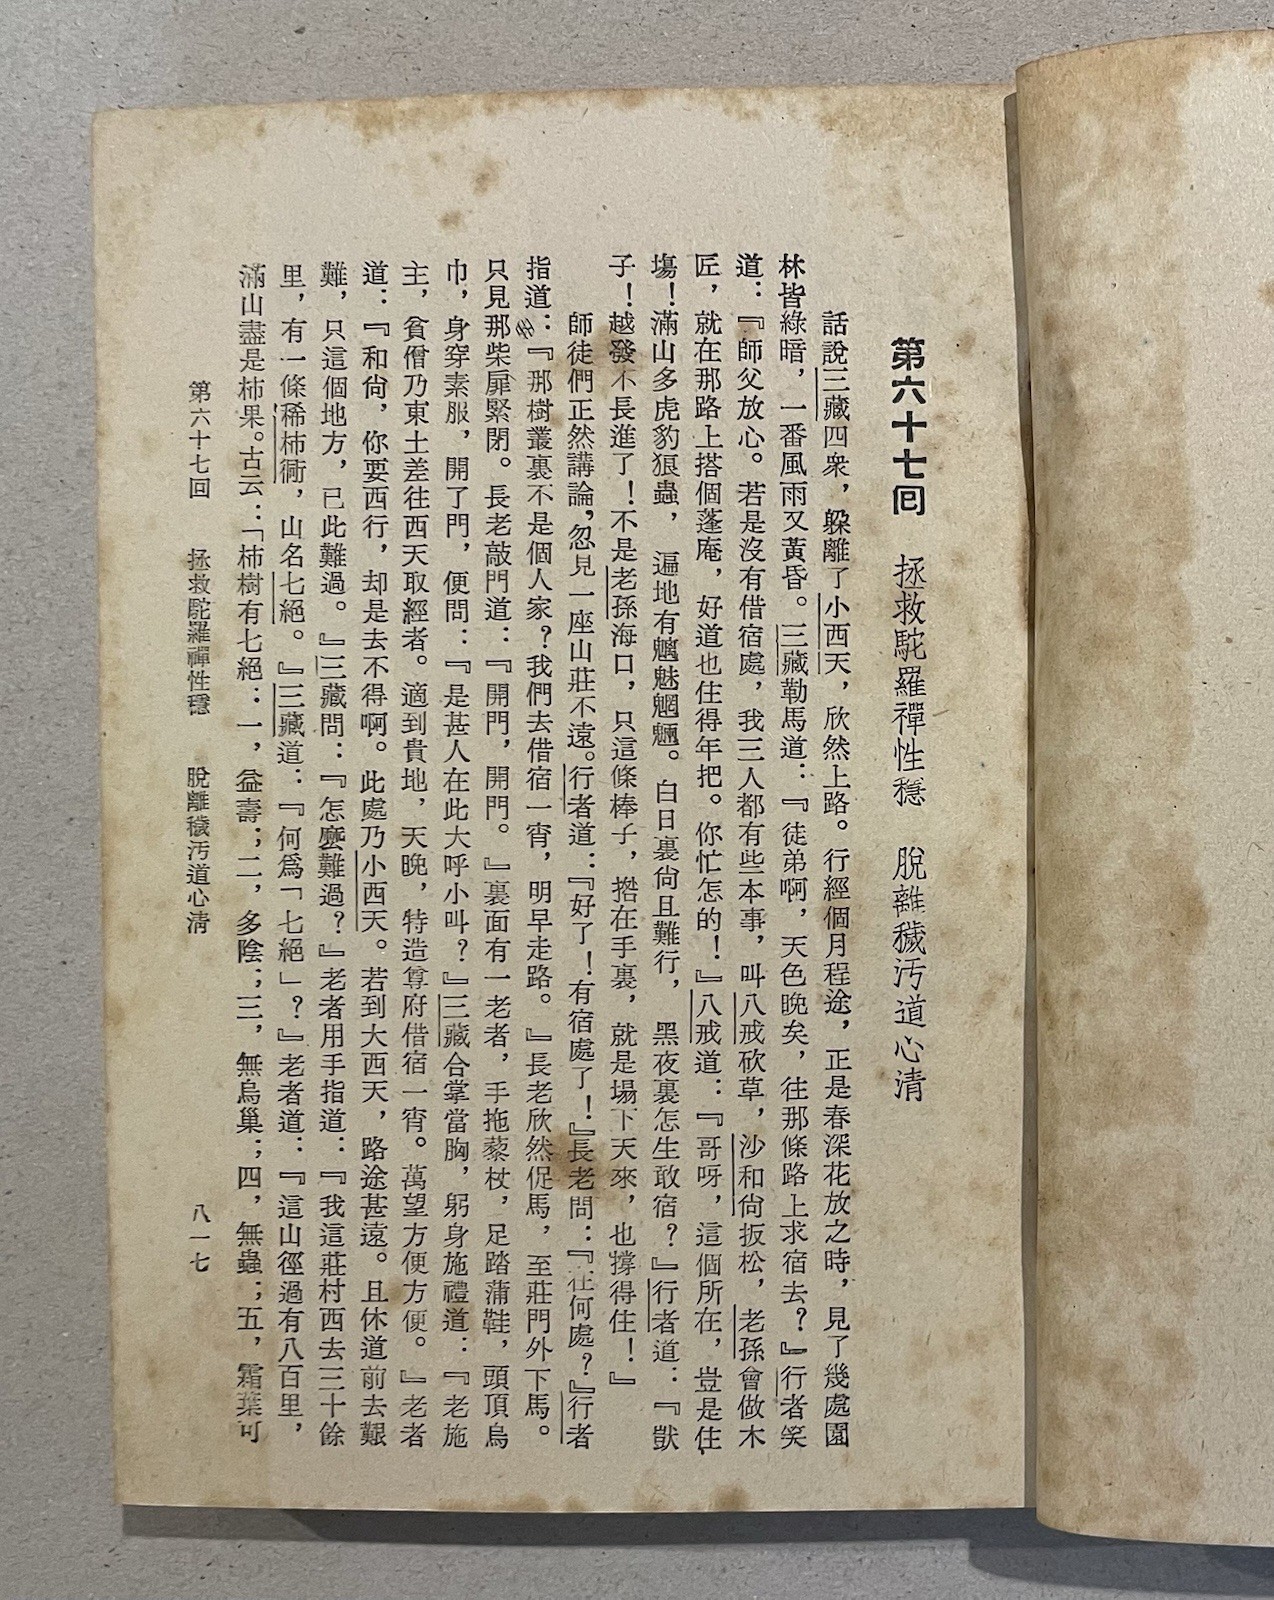 第六十七回　拯救駝羅禪性穩　脫離穢汚道心清
話說三藏四衆，躲離了小西天，欣然上路。行經個月程途，正是春深花放之時，見了幾處園
林皆綠暗，一番風雨又黃昏。三藏勒馬道：『徒弟啊，天色晚矣，往那條路上求宿去？』行者笑
道：『師父放心。若是沒有借宿處，我三人都有些本事，叫八戒砍草，沙和尙扳松，老孫會做木
匠，就在那路上搭個蓬庵，好道也住得年把。你忙怎的！』八戒道：『哥呀，這個所在，豈是住
塲！滿山多虎豹狼蟲，遍地有魑魅魍魎。白日裏尙且難行，黑夜裏怎生敢宿？』行者道：『獃
子！越發不長進了！不是老孫海口，只這條棒子，揝在手裏，就是塌下天來，也撐得住！』
師徒們正然講論，忽見一座山莊不遠。行者道：『好了！有宿處了！』長老問：『在何處？』行者
指道：『那樹叢裏不是個人家？我們去借宿一宵，明早走路。』長老欣然促馬，至莊門外下馬。
只見那柴扉緊閉。長老敲門道：『開門，開門。』裏面有一老者，手拖藜杖，足踏蒲鞋，頭頂烏
巾，身穿素服，開了門，便問：『是甚人在此大呼小叫？』三藏合掌當胸，躬身施禮道：『老施
主，貧僧乃東土差往西天取經者。適到貴地，天晚，特造尊府借宿一宵。萬望方便方便。』老者
道：『和尙，你要西行，却是去不得啊。此處乃小西天。若到大西天，路途甚遠。且休道前去艱
難，只這個地方，已此難過。』三藏問：『怎麼難過？』老者用手指道：『我這莊村西去三十餘
里，有一條稀柿衕，山名七絕。』三藏道：『何爲「七絕」？』老者道：『這山徑過有八百里，
滿山盡是柿果。古云：「柿樹有七絕：一，益壽；二，多陰；三，無鳥巢；四，無蟲；五，霜葉可
第六十七回　拯救駝羅禪性穩　脫離穢汚道心淸　八一七